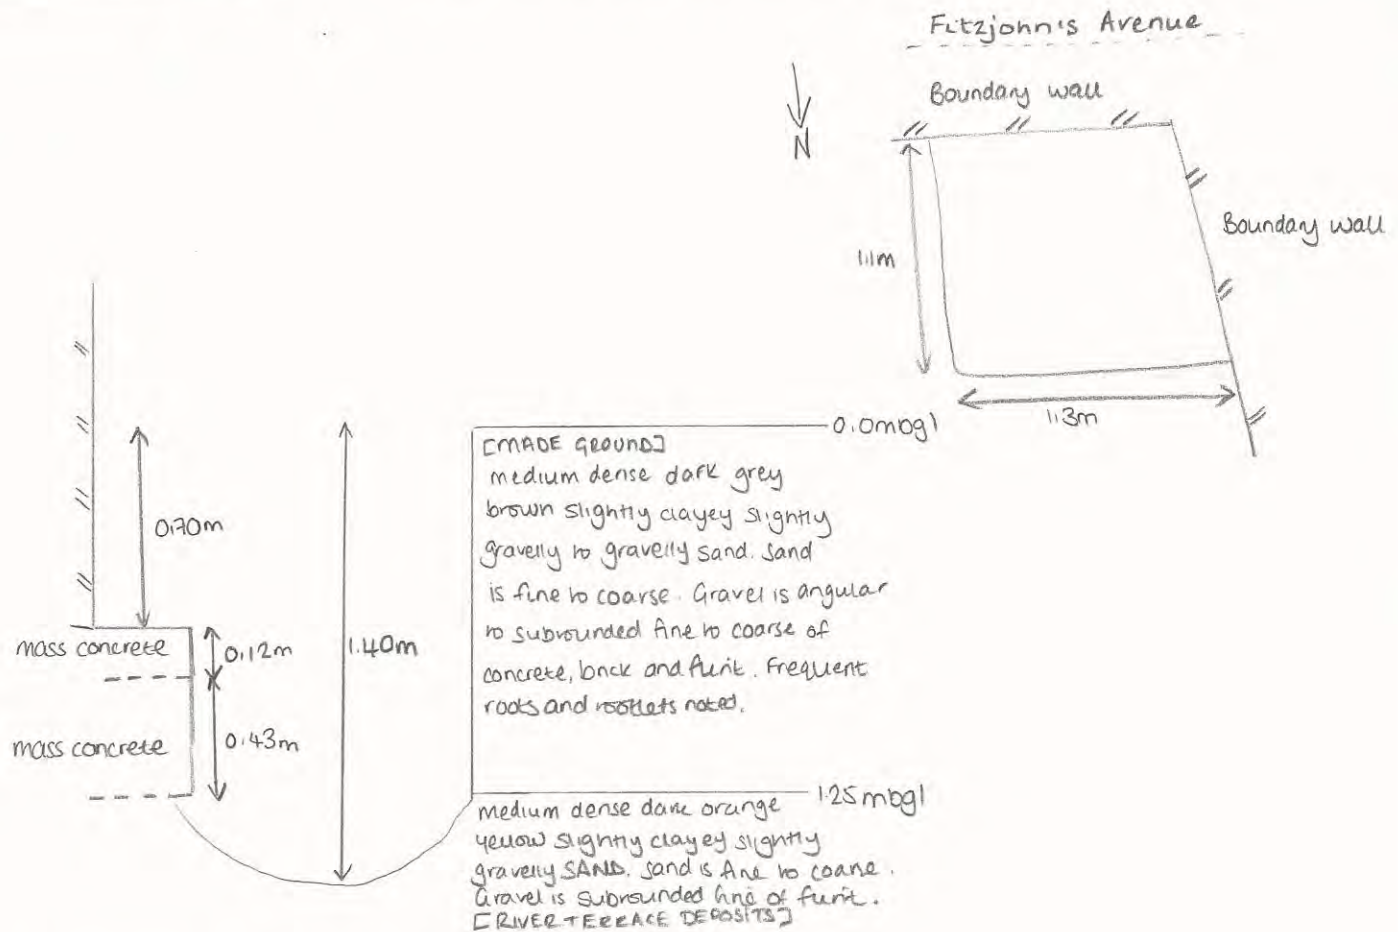 Fitzjohn's Avenue
Boundary wall
N
Boundary wall
1.1m
1.3m
0.0mbgl
[MADE GROUND]
medium dense dark grey
brown slightly clayey slightly
gravelly to gravelly sand. Sand
is fine to coarse. Gravel is angular
to subrounded fine to coarse of
concrete, brick and flint. Frequent
roots and rootlets noted.
0.70m
mass concrete
0.12m
1.40m
mass concrete
0.43m
1.25mbgl
medium dense dark orange
yellow slightly clayey slightly
gravelly SAND. Sand is fine to coarse.
Gravel is subrounded fine of flint.
[RIVER TERRACE DEPOSITS]